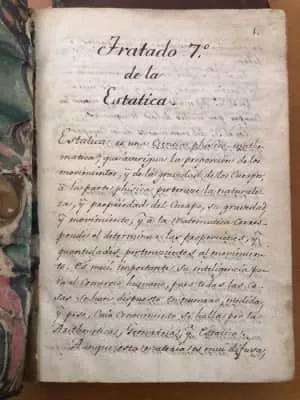 1.
Tratado 7.º
de la
Estatica.
Estatica: es una Ciencia phisico mathe-
matica, que averigua la proporcion de los
movimientos, y de la gravedad de los Cuerpos,
à la parte phisica pertenece la naturale-
za, y propiedad del Cuerpo, su gravedad
y movimiento, y à la Mathematica Corres-
ponde el determinar las proporciones, y
quantidades pertenecientes al movimien-
to. Es mui importante su inteligencia pa-
ra el Comercio humano, pues todas las Co-
sas se han dispuesto en numero, medida,
y peso, Cuio Conocimiento se halla por la
Arithmetica, Geometria, y Estatica.
Aunque esta materia es mui difusa,